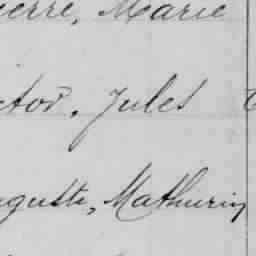 ierre, Marie
ctor, Jules
uguste, Mathurin